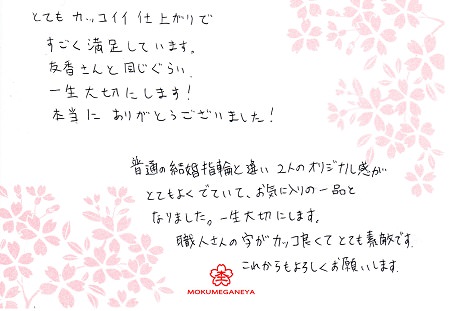 とても カッコイイ 仕上がりで
すごく満足しています。
友香さんと同じぐらい
一生大切にします！
本当に ありがとうございました！
普通の結婚指輪と違い 2人のオリジナル感が
とてもよくでていて、お気に入りの一品と
なりました。一生大切にします。
職人さんの字がカッコ良くてとても素敵です。
これからもよろしくお願いします。
MOKUMEGANEYA